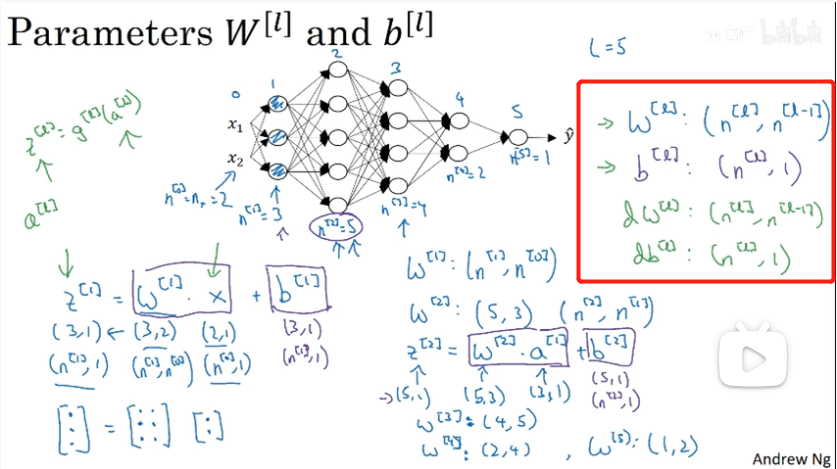 Parameters W^[l] and b^[l]
L=5
bilibili
0
1
2
3
4
5
x₁
x₂
ŷ
z^[l] = g^[l](a^[l])
a^[l]
n^[0]=nₓ=2
n^[1]=3
n^[2]=5
n^[3]=4
n^[4]=2
n^[5]=1
→ W^[l]: (n^[l], n^[l-1])
→ b^[l]: (n^[l], 1)
dW^[l]: (n^[l], n^[l-1])
db^[l]: (n^[l], 1)
z^[1] = W^[1] · x + b^[1]
(3,1) ← (3,2) (2,1) (3,1)
(n^[1],1) (n^[1],n^[0]) (n^[0],1) (n^[1],1)
W^[1]: (n^[1], n^[0])
W^[2]: (5,3) (n^[2], n^[1])
z^[2] = W^[2] · a^[1] + b^[2]
→(5,1) (5,3) (3,1) (5,1)
(n^[2],1)
W^[3]: (4,5)
W^[4]: (2,4) , W^[5]: (1,2)
Andrew Ng